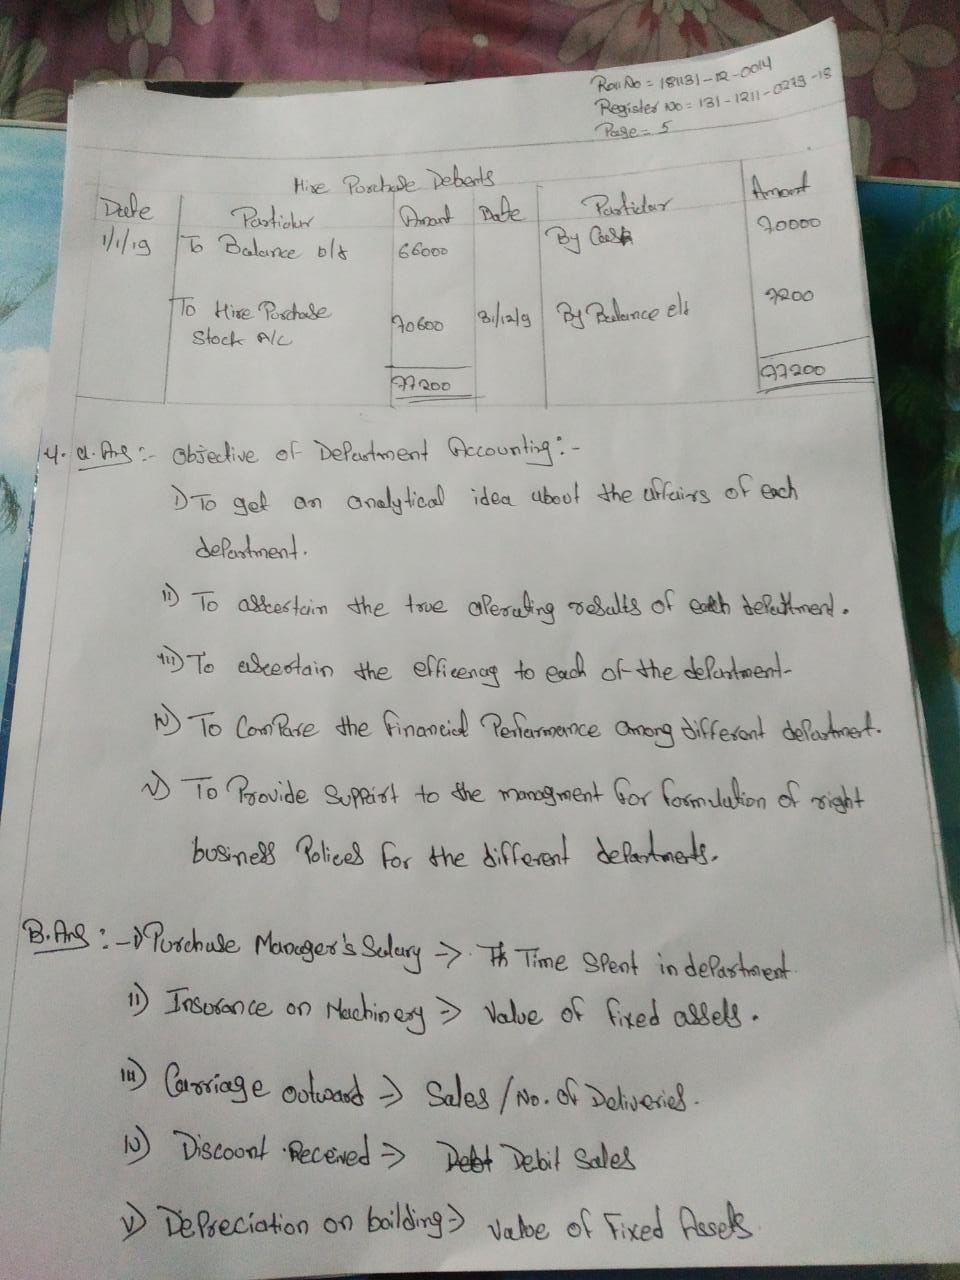 Roll No = 18131-12-0014
Register No = 131-1211-0279-18
Page = 5
Hire Purchase Debents
Date Particular Amount Date Particular Amount
1/1/19 To Balance b/f 66000 By Cash 70000
To Hire Purchase Stock A/C 70600 31/12/9 By Balance c/d 7200
77200 77200
4. a. Ans :- Objective of Department Accounting :-
i) To get an analytical idea about the affairs of each
department.
ii) To ascertain the true operating results of each department.
iii) To ascertain the efficency to each of the department-
iv) To Compare the financial Performance among different department.
v) To Provide Support to the managment for formulation of right
business Polices for the different departments.
B. Ans :- i) Purchase Manager's Salary → Time Spent in department.
ii) Insurance on Machinery ⇒ Value of fixed assets.
iii) Carriage outward → Sales / No. of Deliveries.
iv) Discount Received ⇒ Debit Sales
v) Depreciation on building ⇒ Value of Fixed Assets.